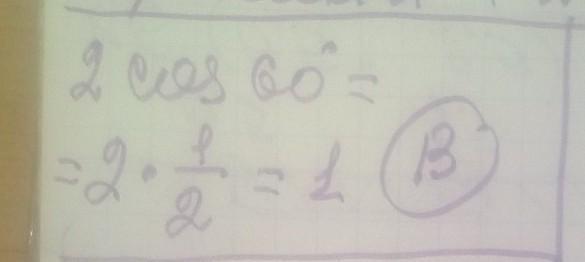 2 cos 60° =
= 2 · 1/2 = 1 B